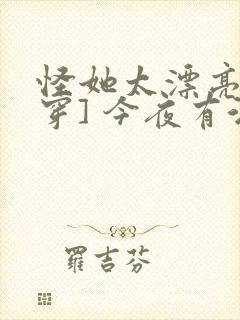 怪她太漂亮
穿]今夜有
羅吉芬